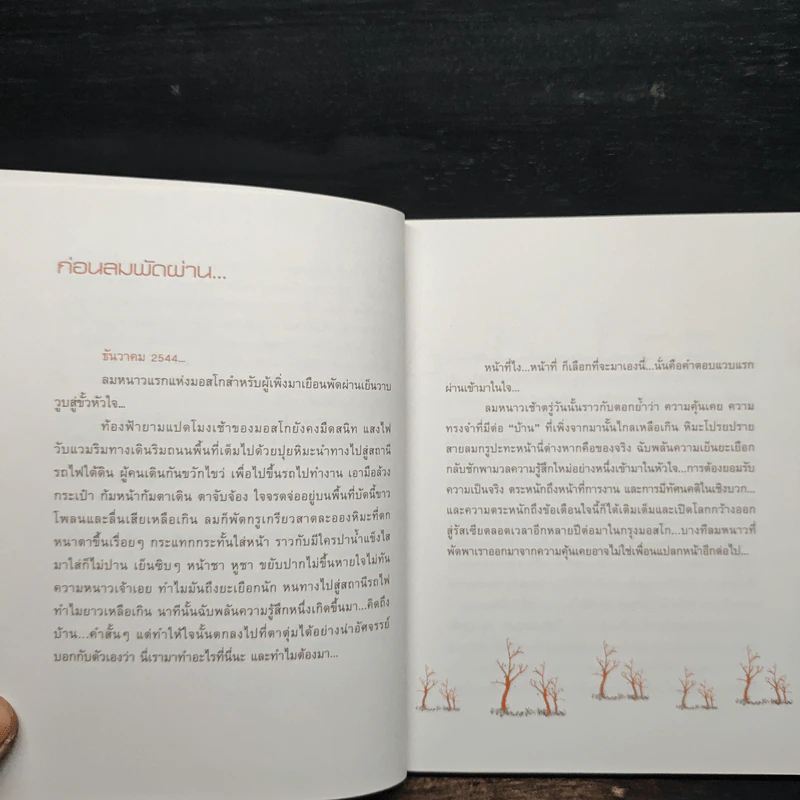 ก่อนลมพัดผ่าน...
ธันวาคม 2544...
ลมหนาวแรกแห่งมอสโกสำหรับผู้เพิ่งมาเยือนพัดผ่านเย็นวาบ
วูบสู่ขั้วหัวใจ...
ท้องฟ้ายามแปดโมงเช้าของมอสโกยังคงมืดสนิท แสงไฟ
วับแวมริมทางเดินริมถนนพื้นที่เต็มไปด้วยปุยหิมะนำทางไปสู่สถานี
รถไฟใต้ดิน ผู้คนเดินกันขวักไขว่ เพื่อไปขึ้นรถไปทำงาน เอามือล้วง
กระเป๋า ก้มหน้าก้มตาเดิน ตาจับจ้อง ใจจรดจ่ออยู่บนพื้นที่บัดนี้ขาว
โพลนและลื่นเสียเหลือเกิน ลมก็พัดกรูเกรียวสาดละอองหิมะที่ตก
หนาตาขึ้นเรื่อยๆ กระแทกกระทั้นใส่หน้า ราวกับมีใครปาน้ำแข็งใส
มาใส่ก็ไม่ปาน เย็นซิบๆ หน้าชา หูชา ขยับปากไม่ขึ้นหายใจไม่ทัน
ความหนาวเจ้าเอย ทำไมมันถึงยะเยือกนัก หนทางไปสู่สถานีรถไฟ
ทำไมยาวเหลือเกิน นาทีนั้นฉับพลันความรู้สึกหนึ่งเกิดขึ้นมา...คิดถึง
บ้าน...คำสั้นๆ แต่ทำให้ใจนั้นตกลงไปที่ตาตุ่มได้อย่างน่าอัศจรรย์
บอกกับตัวเองว่า นี่เรามาทำอะไรที่นี่นะ และทำไมต้องมา...
หน้าที่ไง...หน้าที่ ก็เลือกที่จะมาเองนี่...นั้นคือคำตอบแวบแรก
ผ่านเข้ามาในใจ...
ลมหนาวเช้าตรู่วันนั้นราวกับตอกย้ำว่า ความคุ้นเคย ความ
ทรงจำที่มีต่อ “บ้าน” ที่เพิ่งจากมานั้นไกลเหลือเกิน หิมะโปรยปราย
สายลมกรูปะทะหน้านี่ต่างหากคือของจริง ฉับพลันความเย็นยะเยือก
กลับชักพามวลความรู้สึกใหม่อย่างหนึ่งเข้ามาในหัวใจ...การต้องยอมรับ
ความเป็นจริง ตระหนักถึงหน้าที่การงาน และการมีทัศนคติในเชิงบวก...
และความตระหนักถึงข้อเตือนใจนี้ก็ได้เติมเต็มและเปิดโลกกว้างออก
สู่รัสเซียตลอดเวลาอีกหลายปีต่อมาในกรุงมอสโก...บางทีลมหนาวที่
พัดพาเราออกมาจากความคุ้นเคยอาจไม่ใช่เพื่อนแปลกหน้าอีกต่อไป...